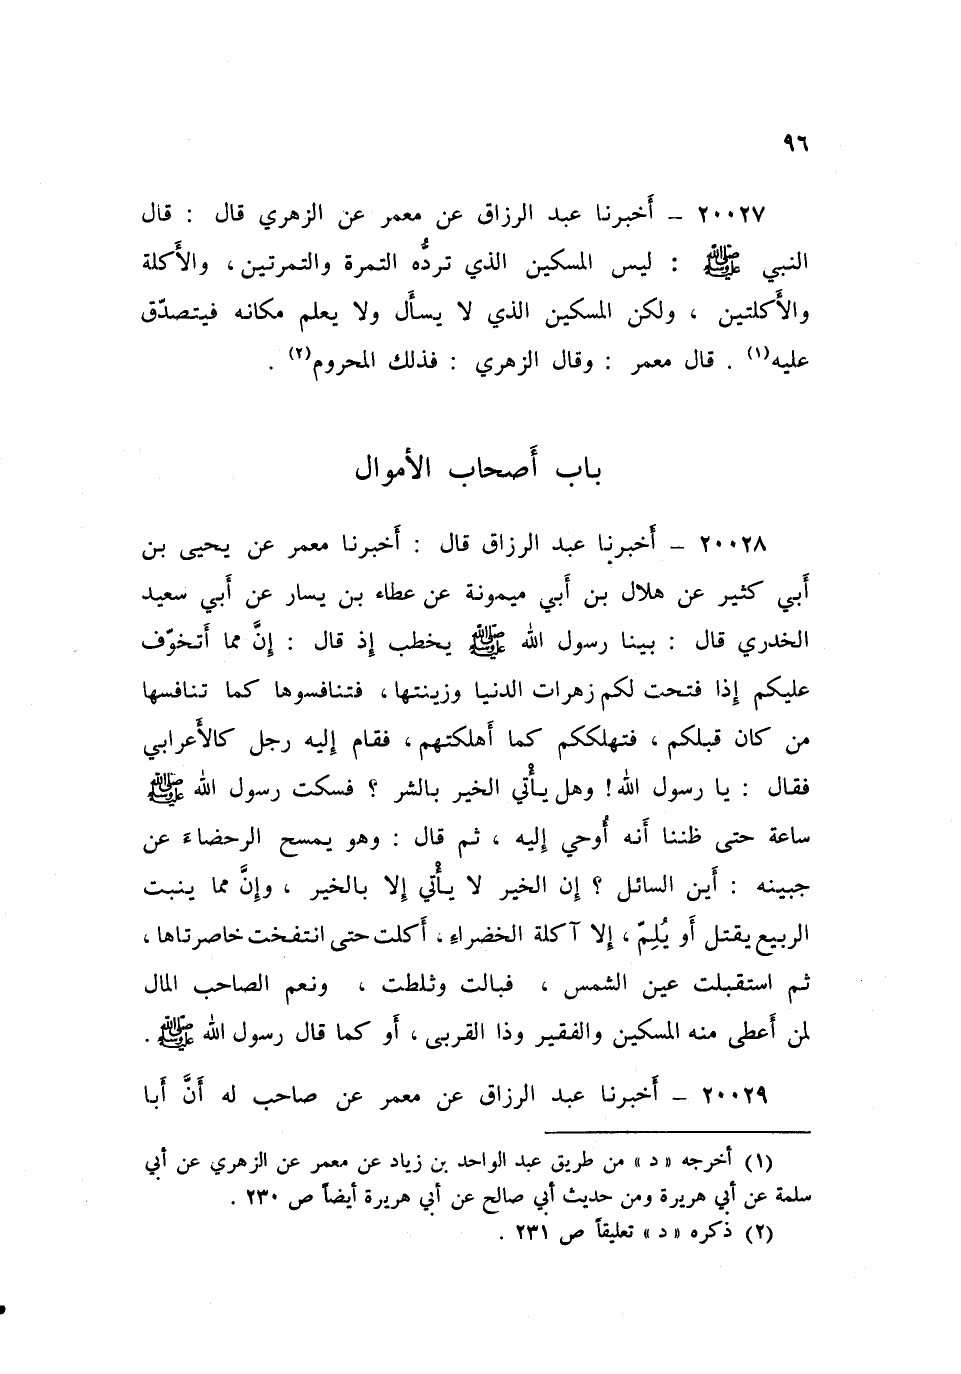 ٩٦
٢٠٠٢٧ – أخبرنا عبد الرزاق عن معمر عن الزهري قال : قال
النبي ﷺ : ليس المسكين الذي تردُّه التمرة والتمرتين ، والأكلة
والأكلتين ، ولكن المسكين الذي لا يسأل ولا يعلم مكانه فيتصدّق
عليه(١) . قال معمر : وقال الزهري : فذلك المحروم(٢) .
باب أصحاب الأموال
٢٠٠٢٨ – أخبرنا عبد الرزاق قال : أخبرنا معمر عن يحيى بن
أبي كثير عن هلال بن أبي ميمونة عن عطاء بن يسار عن أبي سعيد
الخدري قال : بينا رسول الله ﷺ يخطب إذ قال : إنَّ مما أتخوّف
عليكم إذا فتحت لكم زهرات الدنيا وزينتها ، فتنافسوها كما تنافسها
من كان قبلكم ، فتهلككم كما أهلكتهم ، فقام إليه رجل كالأعرابي
فقال : يا رسول الله ! وهل يأتي الخير بالشر ؟ فسكت رسول الله ﷺ
ساعة حتى ظننا أنه أُوحي إليه ، ثم قال : وهو يمسح الرحضاءَ عن
جبينه : أين السائل ؟ إن الخير لا يأتي إلا بالخير ، وإنَّ مما ينبت
الربيع يقتل أو يُلِمّ ، إلا آكلة الخضراء ، أكلت حتى انتفخت خاصرتاها ،
ثم استقبلت عين الشمس ، فبالت وثلطت ، ونعم الصاحب المال
لمن أعطى منه المسكين والفقير وذا القربى ، أو كما قال رسول الله ﷺ .
٢٠٠٢٩ – أخبرنا عبد الرزاق عن معمر عن صاحب له أنَّ أبا
(١) أخرجه «د» من طريق عبد الواحد بن زياد عن معمر عن الزهري عن أبي
سلمة عن أبي هريرة ومن حديث أبي صالح عن أبي هريرة أيضاً ص ٢٣٠ .
(٢) ذكره «د» تعليقاً ص ٢٣١ .